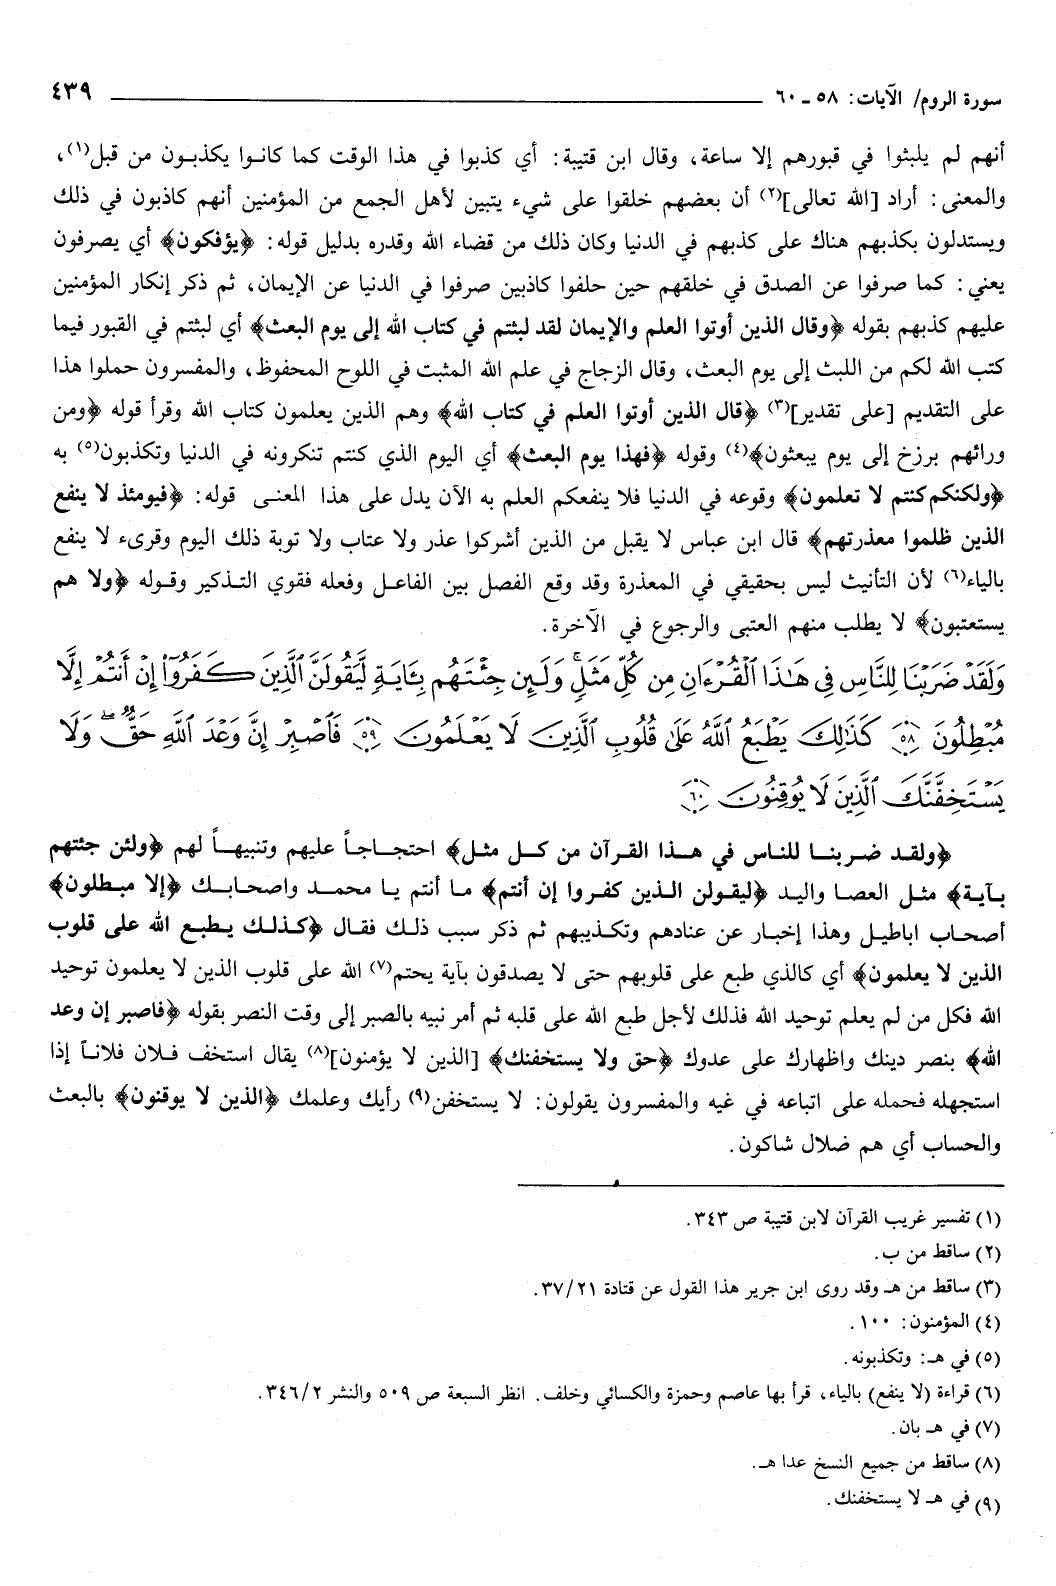 سورة الروم/ الآيات: ٥٨ ـ ٦٠ ٤٣٩
أنهم لم يلبثوا في قبورهم إلا ساعة، وقال ابن قتيبة: أي كذبوا في هذا الوقت كما كانوا يكذبون من قبل(١)،
والمعنى: أراد [الله تعالى](٢) أن بعضهم خلقوا على شيء يتبين لأهل الجمع من المؤمنين أنهم كاذبون في ذلك
ويستدلون بكذبهم هناك على كذبهم في الدنيا وكان ذلك من قضاء الله وقدره بدليل قوله: ﴿يؤفكون﴾ أي يصرفون
يعني: كما صرفوا عن الصدق في خلقهم حين حلفوا كاذبين صرفوا في الدنيا عن الإيمان، ثم ذكر إنكار المؤمنين
عليهم كذبهم بقوله ﴿وقال الذين أوتوا العلم والإيمان لقد لبثتم في كتاب الله إلى يوم البعث﴾ أي لبثتم في القبور فيما
كتب الله لكم من اللبث إلى يوم البعث، وقال الزجاج في علم الله المثبت في اللوح المحفوظ، والمفسرون حملوا هذا
على التقديم [على تقدير](٣) ﴿قال الذين أوتوا العلم في كتاب الله﴾ وهم الذين يعلمون كتاب الله وقرأ قوله ﴿ومن
ورائهم برزخ إلى يوم يبعثون﴾(٤) وقوله ﴿فهذا يوم البعث﴾ أي اليوم الذي كنتم تنكرونه في الدنيا وتكذبون(٥) به
﴿ولكنكم كنتم لا تعلمون﴾ وقوعه في الدنيا فلا ينفعكم العلم به الآن يدل على هذا المعنى قوله: ﴿فيومئذ لا ينفع
الذين ظلموا معذرتهم﴾ قال ابن عباس لا يقبل من الذين أشركوا عذر ولا عتاب ولا توبة ذلك اليوم وقرىء لا ينفع
بالياء(٦) لأن التأنيث ليس بحقيقي في المعذرة وقد وقع الفصل بين الفاعل وفعله فقوي التذكير وقوله ﴿ولا هم
يستعتبون﴾ لا يطلب منهم العتبى والرجوع في الآخرة.
وَلَقَدْ ضَرَبْنَا لِلنَّاسِ فِى هَٰذَا ٱلْقُرْءَانِ مِن كُلِّ مَثَلٍ ۚ وَلَئِن جِئْتَهُم بِـَٔايَةٍ لَّيَقُولَنَّ ٱلَّذِينَ كَفَرُوٓا۟ إِنْ أَنتُمْ إِلَّا
مُبْطِلُونَ ﴿٥٨﴾ كَذَٰلِكَ يَطْبَعُ ٱللَّهُ عَلَىٰ قُلُوبِ ٱلَّذِينَ لَا يَعْلَمُونَ ﴿٥٩﴾ فَٱصْبِرْ إِنَّ وَعْدَ ٱللَّهِ حَقٌّ ۖ وَلَا
يَسْتَخِفَّنَّكَ ٱلَّذِينَ لَا يُوقِنُونَ ﴿٦٠﴾
﴿ولقد ضربنا للناس في هذا القرآن من كل مثل﴾ احتجاجاً عليهم وتنبيهاً لهم ﴿ولئن جئتهم
بآية﴾ مثل العصا واليد ﴿ليقولن الذين كفروا إن أنتم﴾ ما أنتم يا محمد واصحابك ﴿إلا مبطلون﴾
أصحاب اباطيل وهذا إخبار عن عنادهم وتكذيبهم ثم ذكر سبب ذلك فقال ﴿كذلك يطبع الله على قلوب
الذين لا يعلمون﴾ أي كالذي طبع على قلوبهم حتى لا يصدقون بآية يحتم(٧) الله على قلوب الذين لا يعلمون توحيد
الله فكل من لم يعلم توحيد الله فذلك لأجل طبع الله على قلبه ثم أمر نبيه بالصبر إلى وقت النصر بقوله ﴿فاصبر إن وعد
الله﴾ بنصر دينك واظهارك على عدوك ﴿حق ولا يستخفنك﴾ [الذين لا يؤمنون](٨) يقال استخف فلان فلاناً إذا
استجهله فحمله على اتباعه في غيه والمفسرون يقولون: لا يستخفن(٩) رأيك وعلمك ﴿الذين لا يوقنون﴾ بالبعث
والحساب أي هم ضلال شاكون.
(١) تفسير غريب القرآن لابن قتيبة ص ٣٤٣.
(٢) ساقط من ب.
(٣) ساقط من هـ وقد روى ابن جرير هذا القول عن قتادة ٣٧/٢١.
(٤) المؤمنون: ١٠٠.
(٥) في هـ: وتكذبونه.
(٦) قراءة (لا ينفع) بالياء، قرأ بها عاصم وحمزة والكسائي وخلف. انظر السبعة ص ٥٠٩ والنشر ٣٤٦/٢.
(٧) في هـ بان.
(٨) ساقط من جميع النسخ عدا هـ.
(٩) في هـ لا يستخفنك.